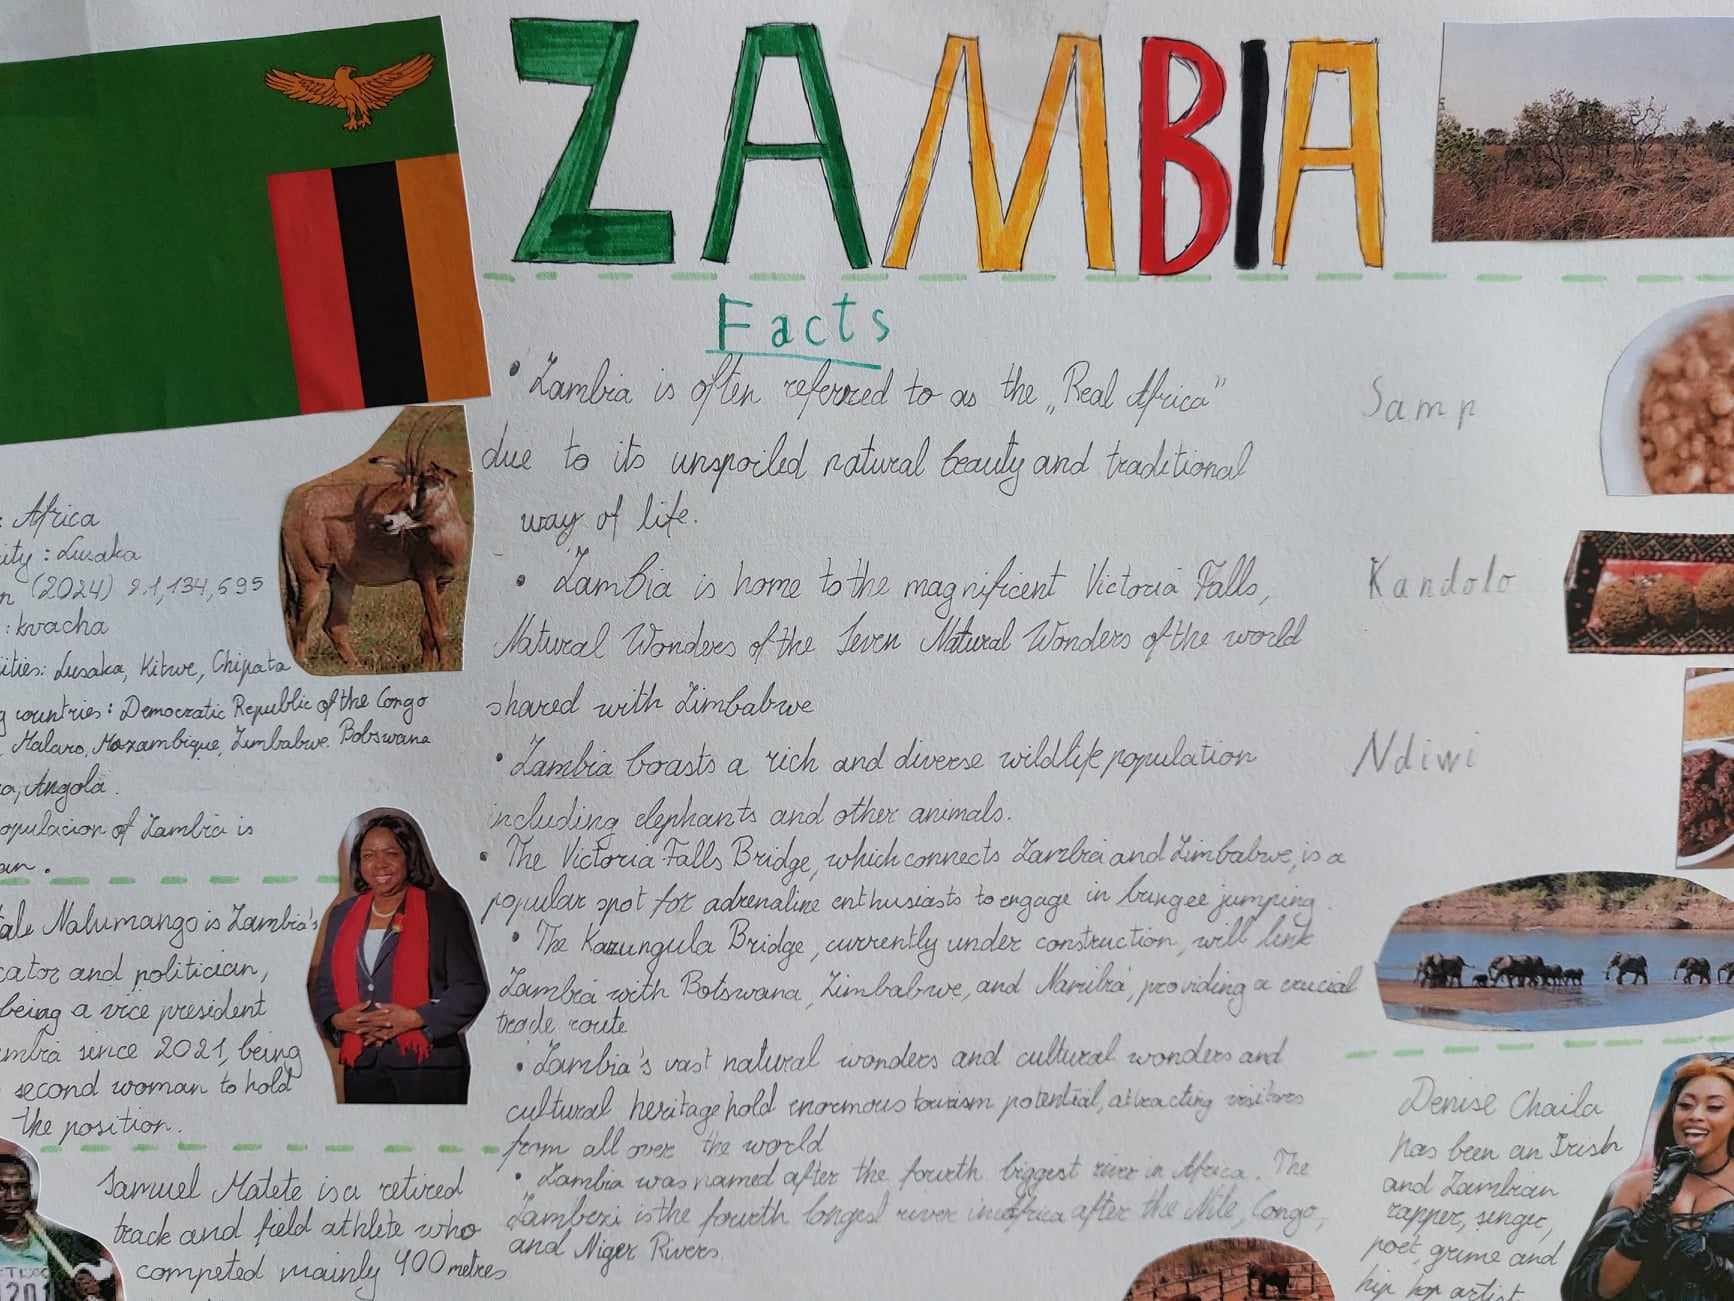 ZAMBIA
Facts
• Zambia is often referred to as the „Real Africa”
due to its unspoiled natural beauty and traditional
way of life.
• Zambia is home to the magnificent Victoria Falls,
Natural Wonders of the Seven Natural Wonders of the world
shared with Zimbabwe
• Zambia boasts a rich and diverse wildlife population
including elephants and other animals.
• The Victoria Falls Bridge, which connects Zambia and Zimbabwe, is a
popular spot for adrenaline enthusiasts to engage in bungee jumping.
• The Kazungula Bridge, currently under construction, will link
Zambia with Botswana, Zimbabwe, and Namibia, providing a crucial
trade route
• Zambia's vast natural wonders and cultural wonders and
cultural heritage hold enormous tourism potential, attracting visitors
from all over the world
• Zambia was named after the fourth biggest river in Africa. The
Zambezi is the fourth longest river in Africa after the Nile, Congo,
and Niger Rivers
: Africa
ity : Lusaka
n (2024) 21,134,695
: kwacha
ities: Lusaka, Kitwe, Chipata
g countries: Democratic Republic of the Congo
, Malawo, Mozambique, Zimbabwe Bobswana
a, Angola.
opulacion of Zambia is
an.
ale Nalumango is Zambia's
cator and politician,
being a vice president
mbia since 2021, being
second woman to hold
the position.
Samuel Matete is a retired
track and field athlete who
competed mainly 400 metres
1201
Samp
Kandolo
Ndiwi
Denise Chaila
has been an Irish
and Zambian
rapper, singer,
poet, grime and
hip hop artist